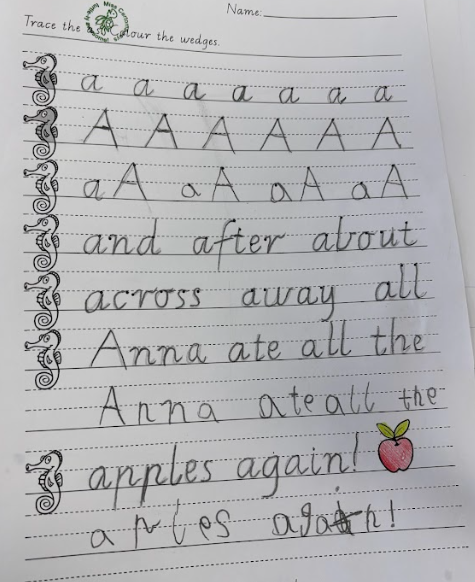 Name:
Trace the
colour the wedges.
a a a a a a a
A A A A A A
aA aA aA aA
and after about
across away all
Anna ate all the
Anna ate all the
apples again!
aples again!